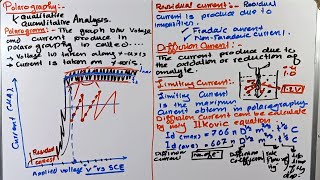 Polarography:-
Qualitative
Quantitative Analysis.
Polarograms:- The graph b/w Voltage
and current produce in
polarography is called....
→ Voltage taken along x-axis
→ Current is taken on y-axis.
Current (µA)
Residual
current
Applied voltage V vs SCE
Residual current:- Residual
Current is produce due to
impurities
→ Fradaic current
→ Non-Faradaic current.
Diffusion Current:-
The current produce due
to the oxidation or reduction of
analyte.
Limiting Current:-
Limiting Current
is the maximum
Current obtain in polarography
Diffusion Current can be calculate
by only Ilkovic equation
Id (max) = 706 n
Id (mean) = 607 n
Diffusion
Current
Diffusion
Coefficient